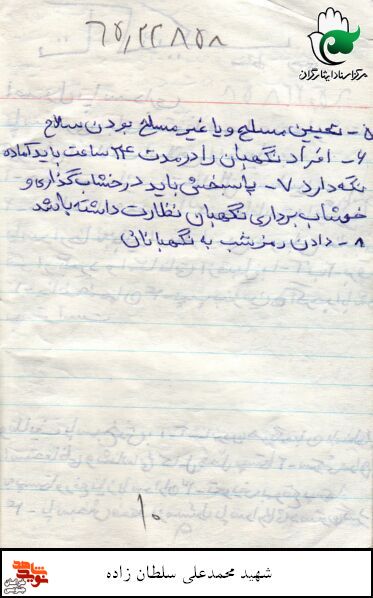 مرکز اسناد ایثارگران
۵- تعیین مسلح و یا غیر مسلح بودن سلاح
۶- افراد نگهبان را در مدت ۲۴ ساعت باید آماده
نگه دارد ۷- پاسبخش باید در خشاب گذاری و
خشاب برداری نگهبان نظارت داشته باشد
۸- دادن رمز شب به نگهبانان
۱۰
شهید محمدعلی سلطان زاده
نوید شاهد